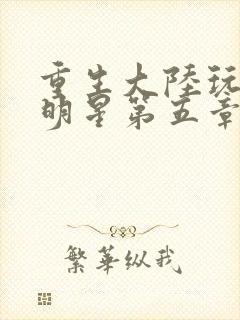 重生大陸玩
明星第五章
繁華纵我